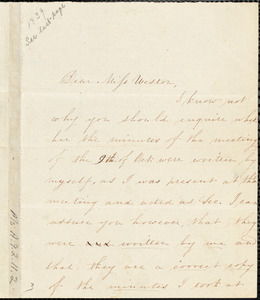 1839
See last page
Dear Miss Weston,
I know not
why you should enquire whet
her the minutes of the meeting
of the 9th of Oct. were written by
myself, as I was present at the
meeting and acted as Sec. I can
assure you however, that they
were written by me and
that they are a correct copy
of the minutes I took at